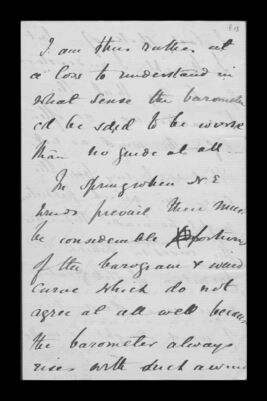 I am thus rather at
a loss to understand in
what sense the barometer
cd be said to be worse
than no guide at all
In spring when N E
winds prevail there must
be considerable portions
of the barogram & wind
curve which do not
agree at all well because
the barometer always
rises with such a wind